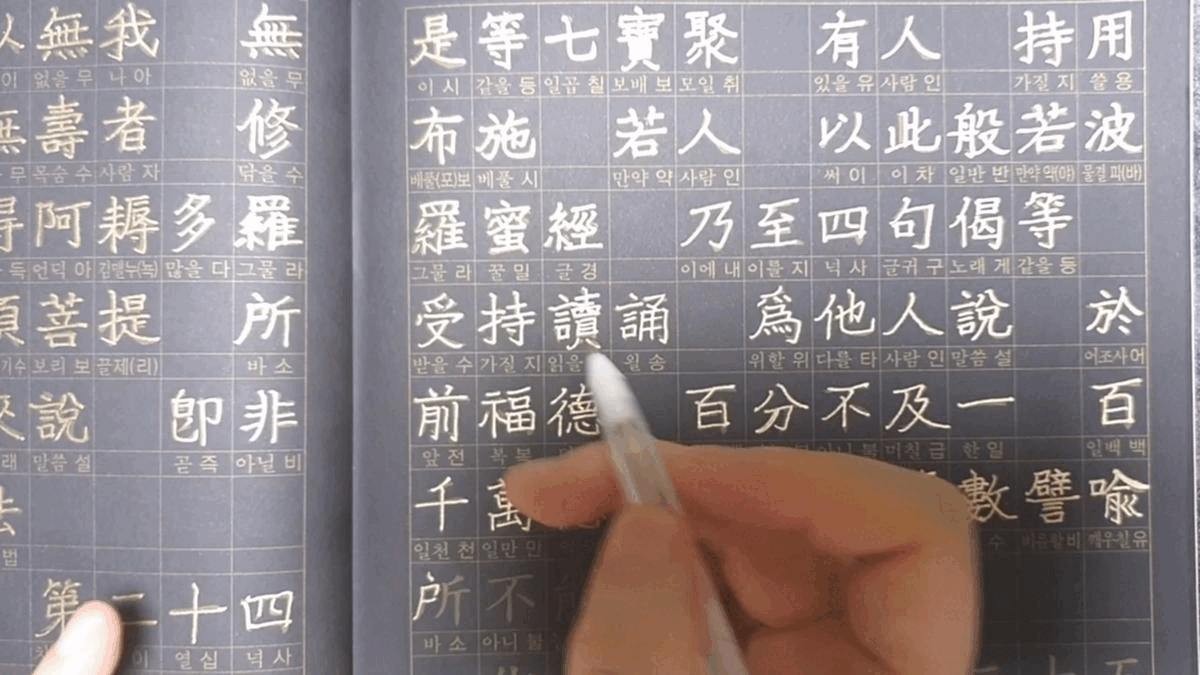 無我 無
없을 무 나 아 없을 무
壽者 修
목숨 수 사람 자 닦을 수
阿耨多羅
언덕 아 김맬누(녹) 많을 다 그물 라
菩提 所
보리 보 끌제(리) 바 소
說 卽非
말씀 설 곧 즉 아닐 비
법
第二十四
열 십 넉 사
是等七寶聚 有人 持用
이 시 같을 등 일곱 칠 보배 보 모일 취 있을 유 사람 인 가질 지 쓸 용
布施 若人 以此般若波
베풀(포)보 베풀 시 만약 약 사람 인 써 이 이 차 일반 반 만약 약(야) 물결 파(바)
羅蜜經 乃至四句偈等
그물 라 꿀 밀 글 경 이에 내 이를 지 넉 사 글귀 구 노래 게 같을 등
受持讀誦 爲他人說 於
받을 수 가질 지 읽을 욀 송 위할 위 다를 타 사람 인 말씀 설 어조사 어
前福德 百分不及一 百
앞 전 복 복 미칠 급 한 일 일백 백
千萬 數譬喩
일천 천 일만 만 수 비유할 비 깨우칠 유
所不
바 소 아니 불